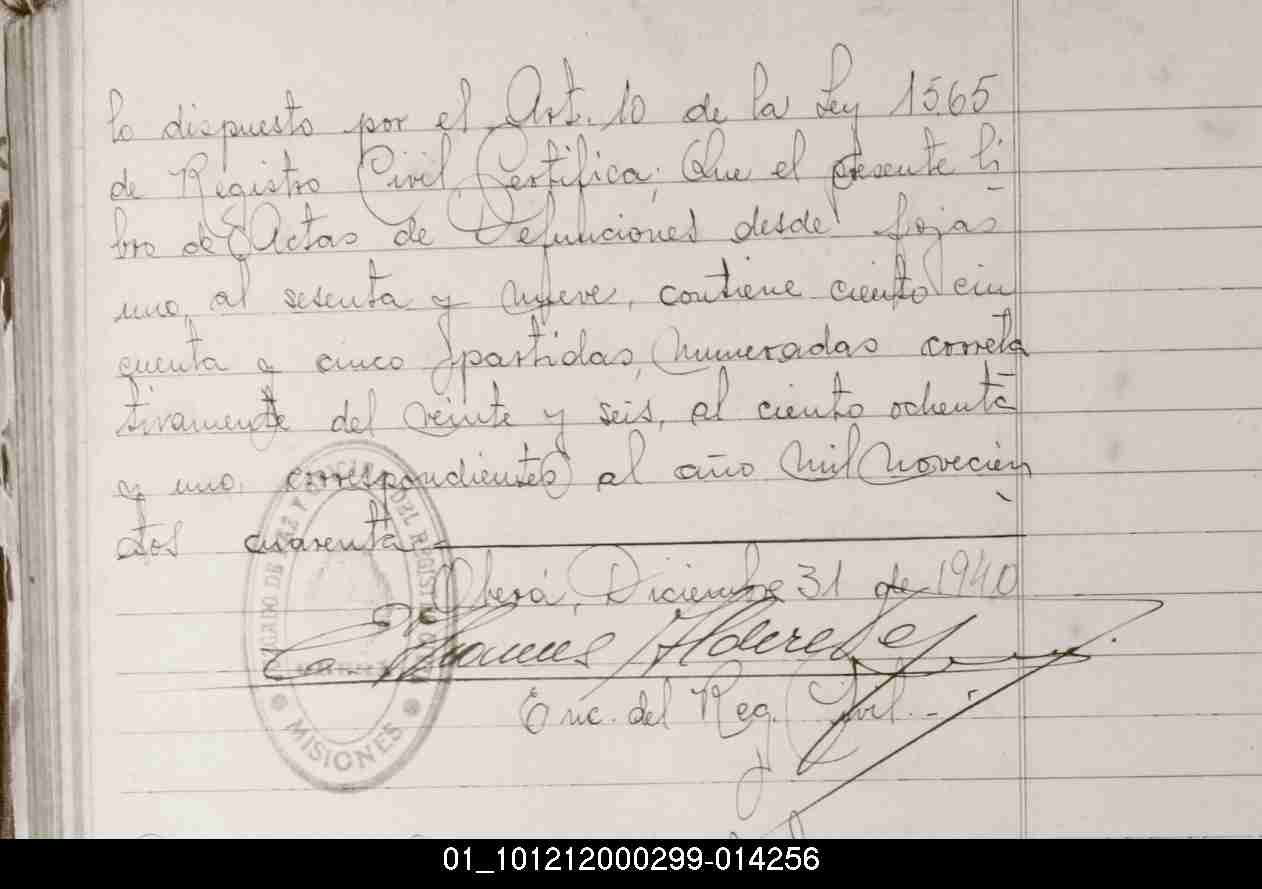 lo dispuesto por el Art. 10 de la Ley 1565
de Registro Civil, Certifica; Que el presente li
bro de Actas de Defunciones desde fojas
uno, al sesenta y nueve, contiene ciento cin
cuenta y cinco partidas, numeradas correla
tivamente del veinte y seis, al ciento ochenta
y uno, correspondientes al año mil novecien
tos cuarenta
Oberá, Diciembre 31 de 1940
Enc. del Reg. Civil.-
MISIONES
01_101212000299-014256